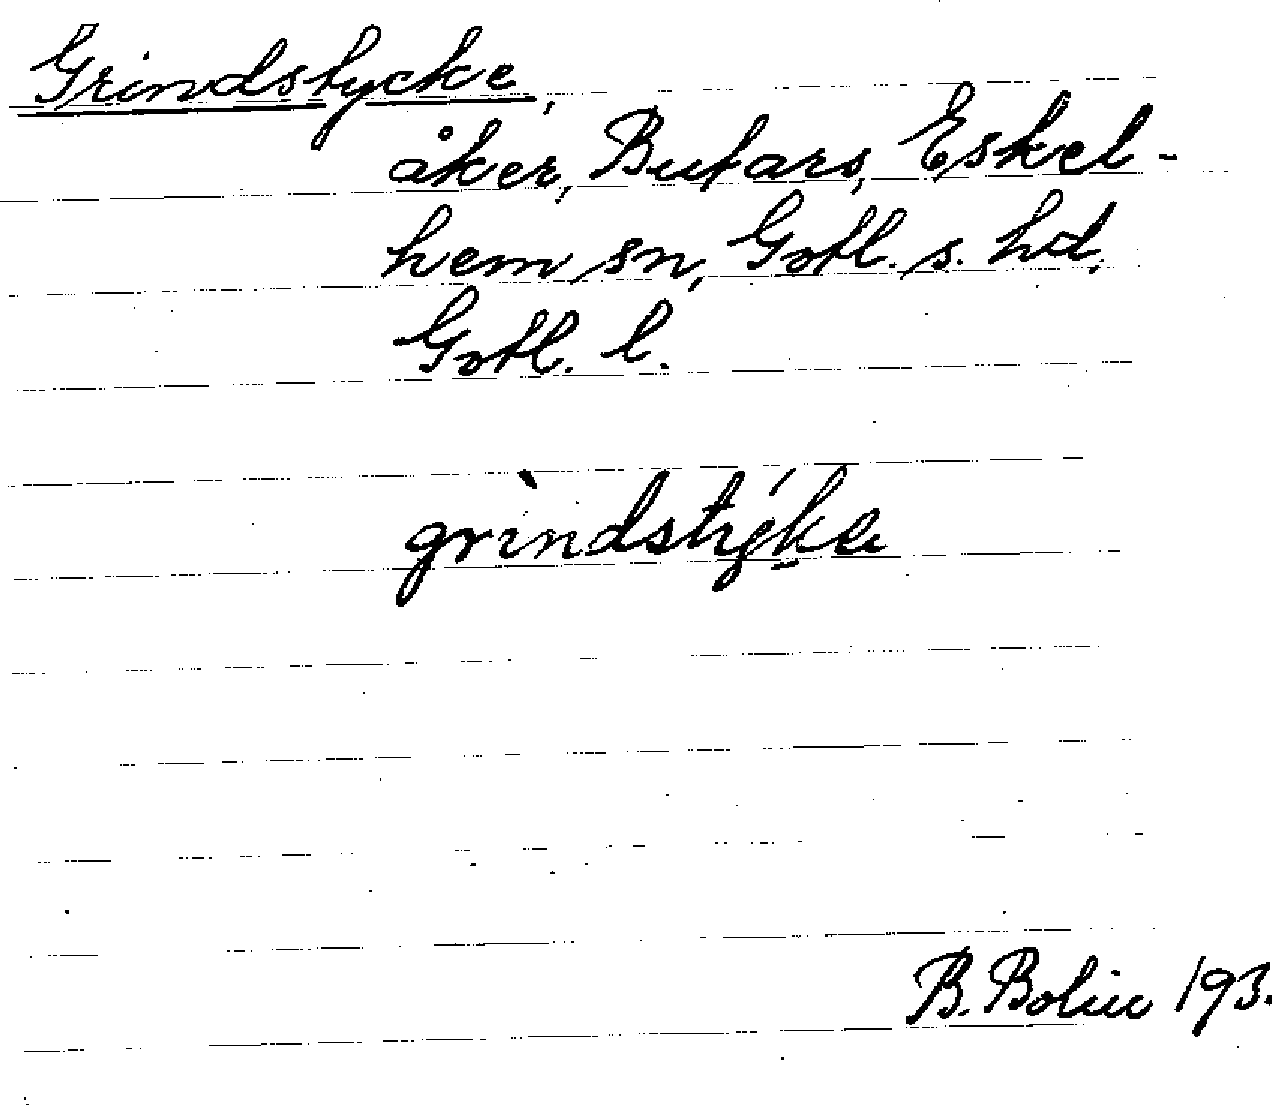 Grindstycke,
åker, Butars, Eskel-
hem sn, Gotl. s. hd,
Gotl. l.
grìndstýka
B. Bolin 193